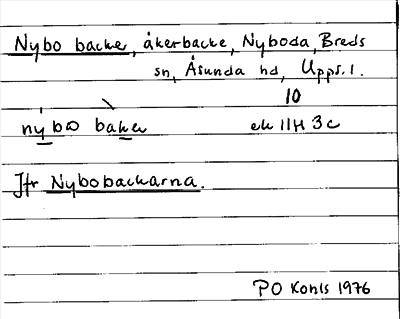 Nybo backe, åkerbacke, Nyboda, Breds
sn, Åsunda hd, Upps. l.
10
nybω baker ek 11H 3c
Jfr Nybobackarna.
PO Konls 1976